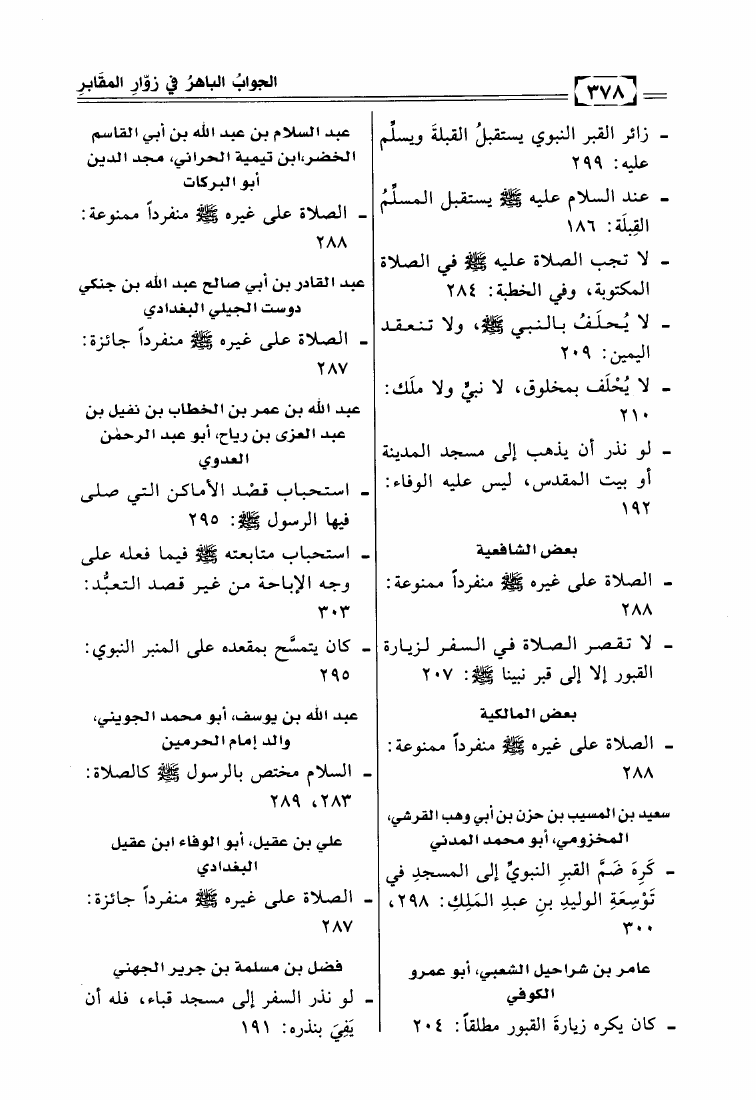 ٣٧٨
الجوابُ الباهرُ في زوّارِ المقَابرِ
- زائر القبر النبوي يستقبلُ القبلةَ ويسلِّم
عليه: ٢٩٩
- عند السلام عليه ﷺ يستقبل المسلِّمُ
القِبلَة: ١٨٦
- لا تجب الصلاة عليه ﷺ في الصلاة
المكتوبة، وفي الخطبة: ٢٨٤
- لا يُحلَفُ بالنبي ﷺ، ولا تنعقد
اليمين: ٢٠٩
- لا يُحْلَف بمخلوق، لا نبيٌّ ولا ملَك:
٢١٠
- لو نذر أن يذهب إلى مسجد المدينة
أو بيت المقدس، ليس عليه الوفاء:
١٩٢
بعض الشافعية
- الصلاة على غيره ﷺ منفرداً ممنوعة:
٢٨٨
- لا تقصر الصلاة في السفر لزيارة
القبور إلا إلى قبر نبينا ﷺ: ٢٠٧
بعض المالكية
- الصلاة على غيره ﷺ منفرداً ممنوعة:
٢٨٨
سعيد بن المسيب بن حزن بن أبي وهب القرشي،
المخزومي، أبو محمد المدني
- كَرِهَ ضَمَّ القبرِ النبويِّ إلى المسجدِ في
تَوْسِعَةِ الوليدِ بنِ عبدِ المَلِكِ: ٢٩٨،
٣٠٠
عامر بن شراحيل الشعبي، أبو عمرو
الكوفي
- كان يكره زيارةَ القبور مطلقاً: ٢٠٤
عبد السلام بن عبد الله بن أبي القاسم
الخضر،ابن تيمية الحراني، مجد الدين
أبو البركات
- الصلاة على غيره ﷺ منفرداً ممنوعة:
٢٨٨
عبد القادر بن أبي صالح عبد الله بن جنكي
دوست الجيلي البغدادي
- الصلاة على غيره ﷺ منفرداً جائزة:
٢٨٧
عبد الله بن عمر بن الخطاب بن نفيل بن
عبد العزى بن رياح، أبو عبد الرحمٰن
العدوي
- استحباب قصْد الأماكن التي صلى
فيها الرسول ﷺ: ٢٩٥
- استحباب متابعته ﷺ فيما فعله على
وجه الإباحة من غير قصد التعبُّد:
٣٠٣
- كان يتمسَّح بمقعده على المنبر النبوي:
٢٩٥
عبد الله بن يوسف، أبو محمد الجويني،
والد إمام الحرمين
- السلام مختص بالرسول ﷺ كالصلاة:
٢٨٣، ٢٨٩
علي بن عقيل، أبو الوفاء ابن عقيل
البغدادي
- الصلاة على غيره ﷺ منفرداً جائزة:
٢٨٧
فضل بن مسلمة بن جرير الجهني
- لو نذر السفر إلى مسجد قباء، فله أن
يَفِيَ بنذره: ١٩١